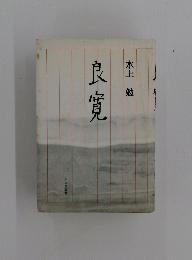 水上 勉
良寛